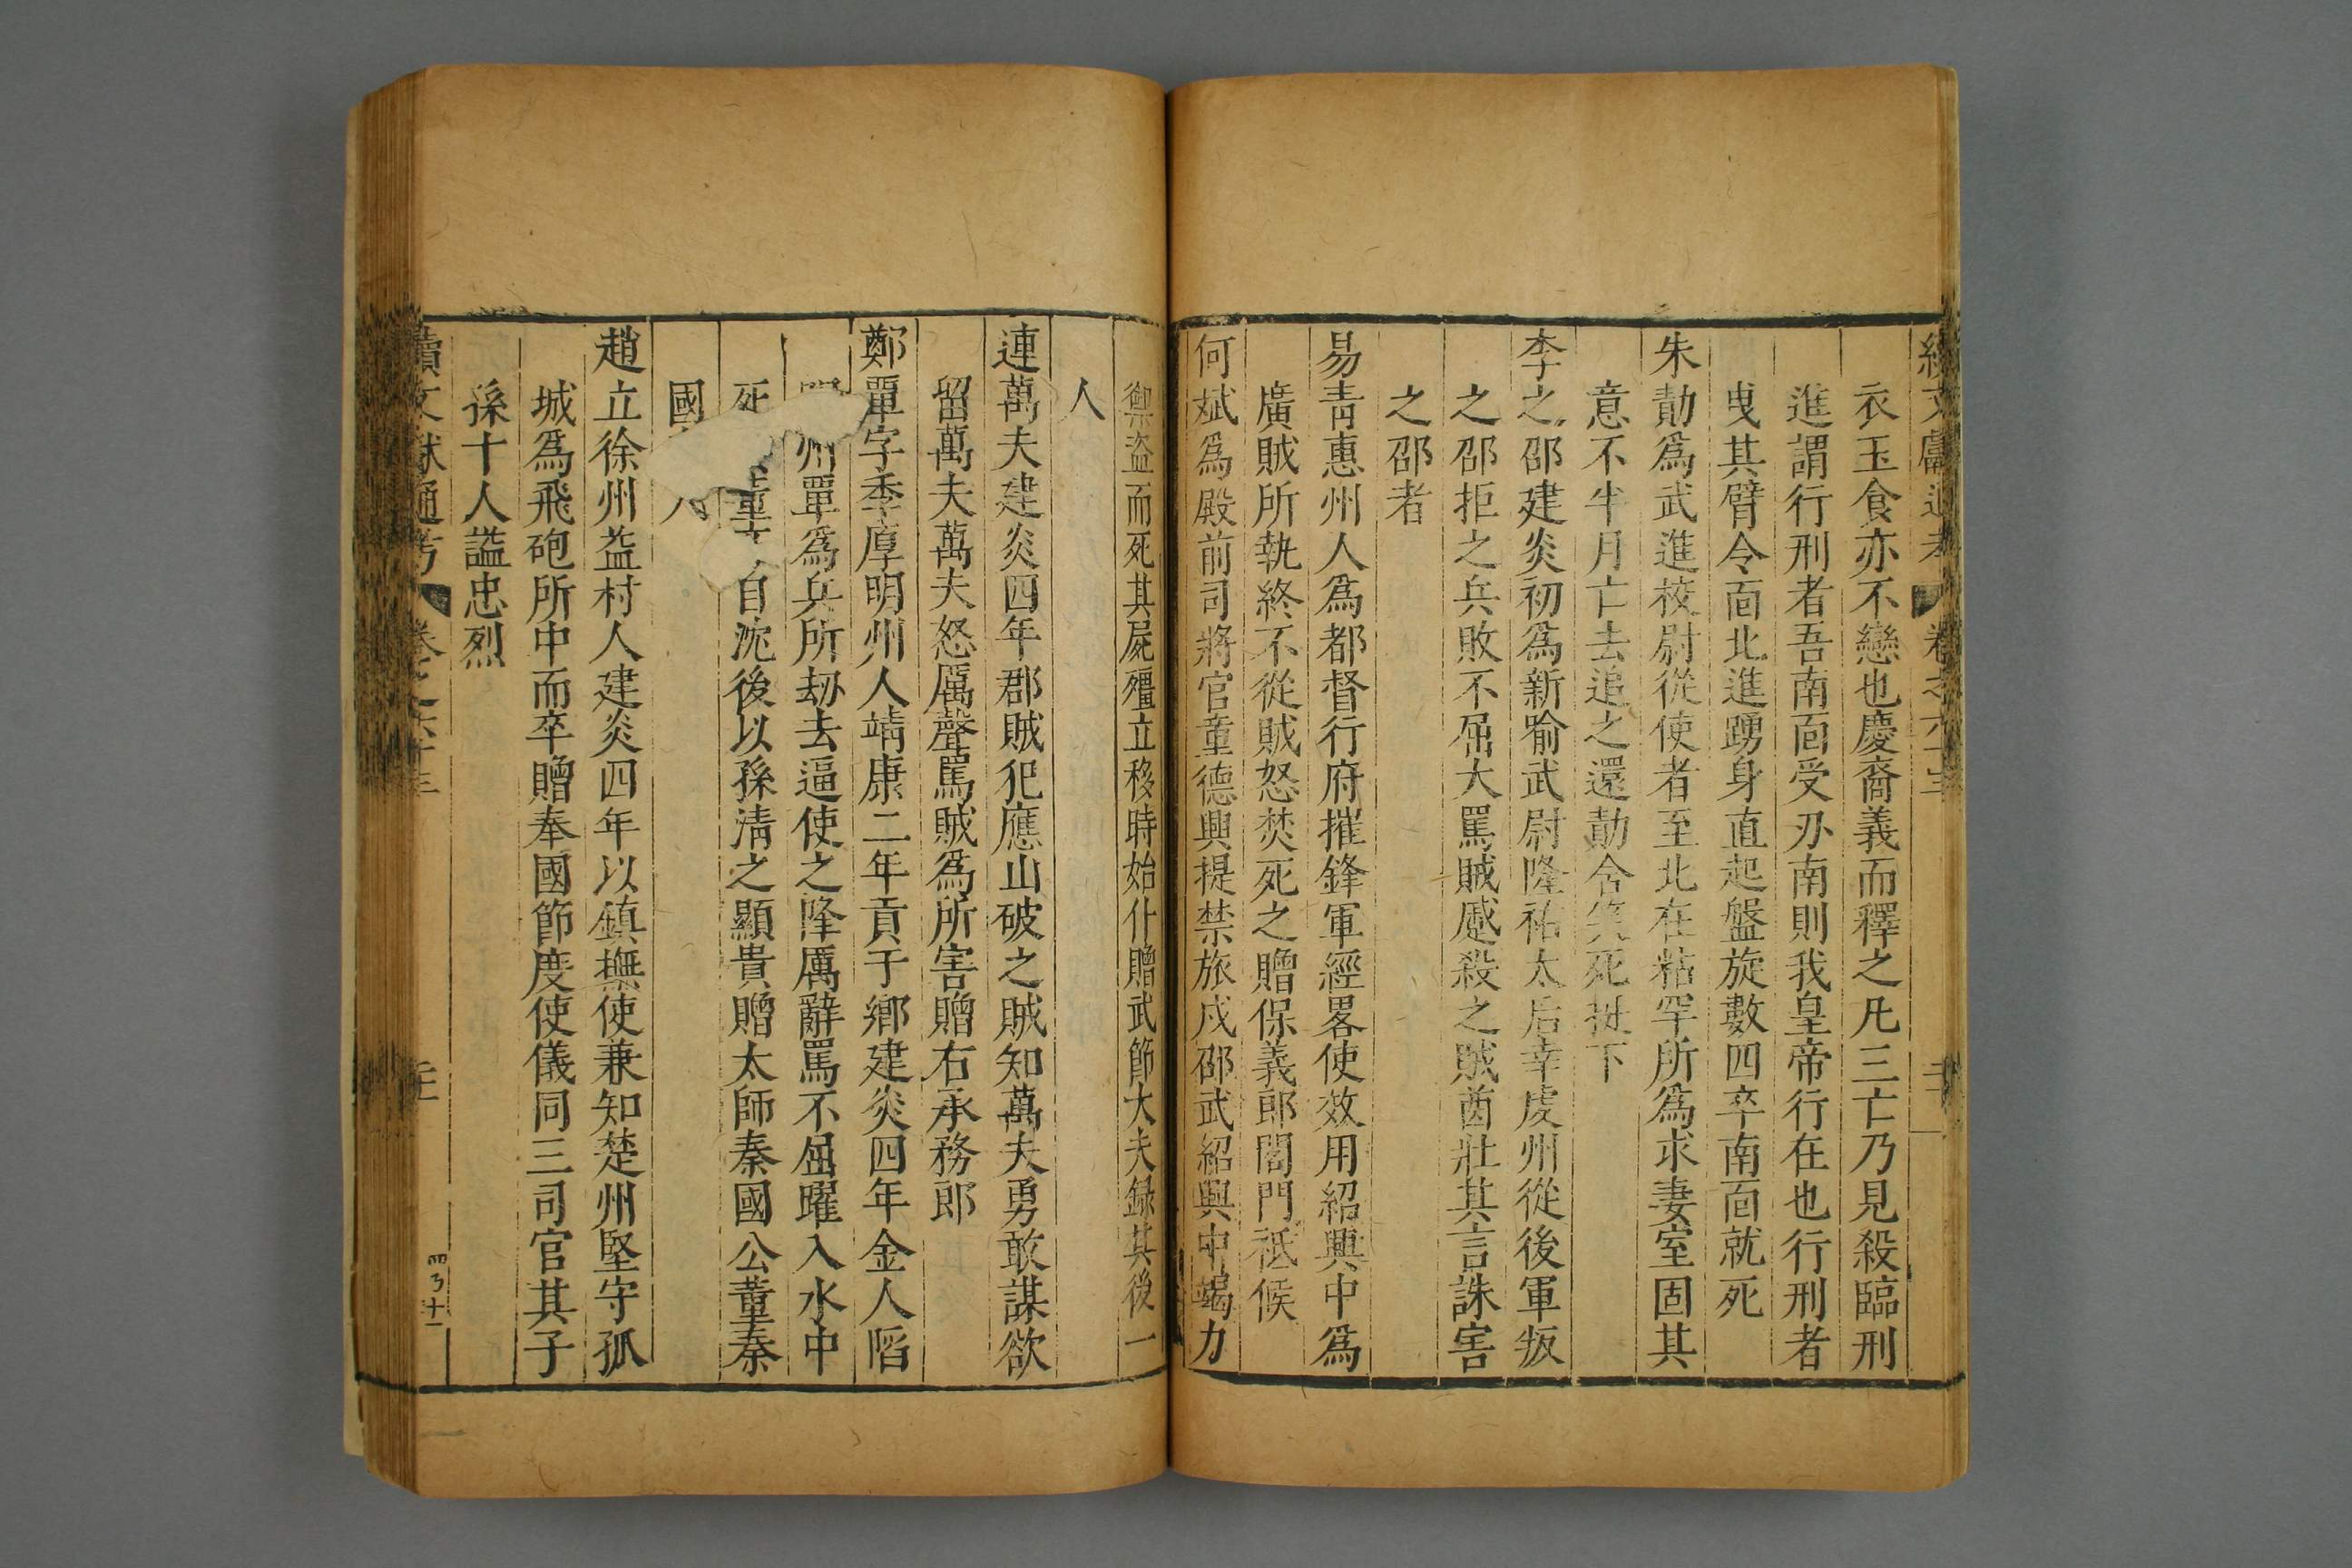 續文獻通考 卷之六十三
衣玉食亦不戀也慶裔義而釋之凡三亡乃見殺臨刑
進謂行刑者吾南面受刃南則我皇帝行在也行刑者
曳其臂令面北進踴身直起盤旋數四卒南面就死
朱勣爲武進校尉從使者至北在粘罕所爲求妻室固其
意不半月亡去追之還勣含笑死梃下
李之邵建炎初爲新喻武尉隆祐太后幸虔州從後軍叛
之邵拒之兵敗不屈大罵賊慼殺之賊酋壯其言誅害
之邵者
易青惠州人爲都督行府摧鋒軍經畧使效用紹興中爲
廣賊所執終不從賊怒焚死之贈保義郎閤門祗候
何斌爲殿前司將官童德興提禁旅戍邵武紹興中竭力
禦盜而死其屍殭立移時始什贈武節大夫録其後一
人
連萬夫建炎四年郡賊犯應山破之賊知萬夫勇敢謀欲
留萬夫萬夫怒厲聲罵賊爲所害贈右承務郎
鄭覃字季厚明州人靖康二年貢于鄉建炎四年金人陷
州覃爲兵所劫去逼使之降厲辭罵不屈曜入水中
死 自沈後以孫清之顯貴贈太師秦國公董秦
國 人
趙立徐州益村人建炎四年以鎮撫使兼知楚州堅守孤
城爲飛砲所中而卒贈奉國節度使儀同三司官其子
孫十人謚忠烈
續文獻通考 卷之六十三